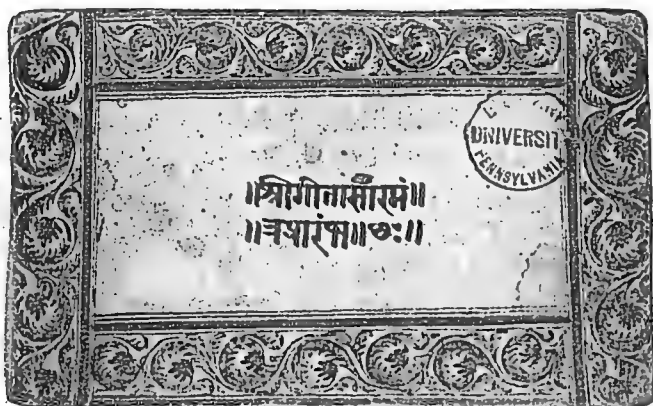 UNIVERSIT
PENNSYLVANIA
॥श्रीगीतासारमं॥
॥त्रप्रारंभ॥छः॥